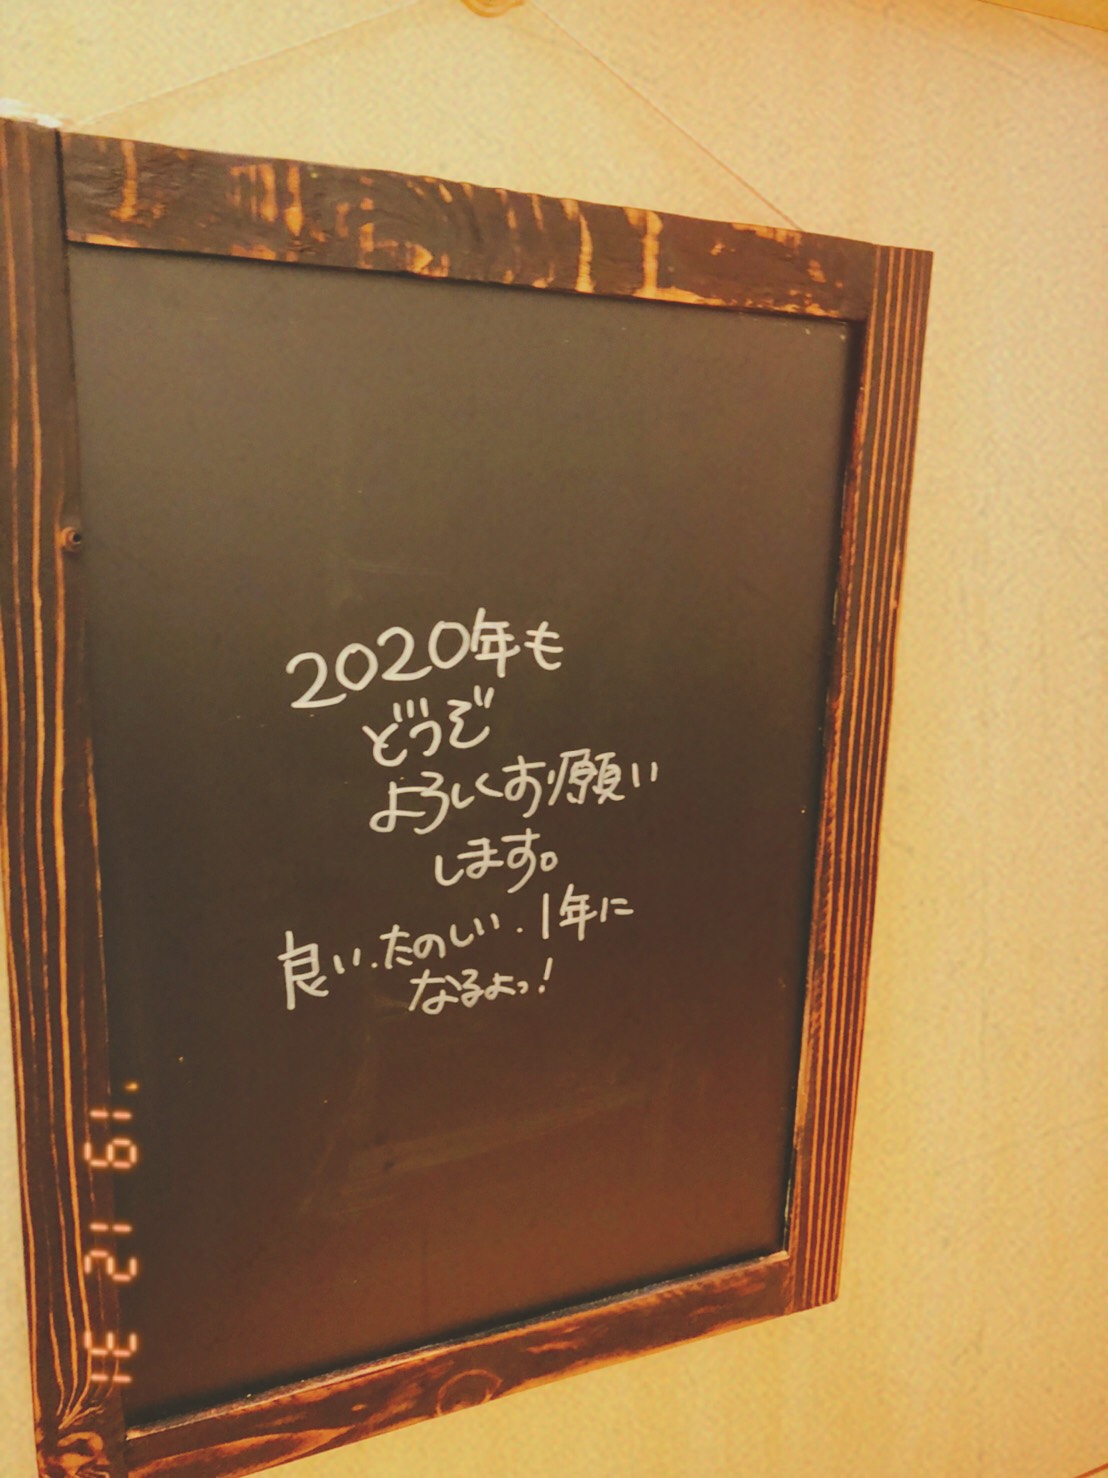 2020年も
どうぞ
よろしくお願い
します。
良い.たのしい.1年に
なるよっ!
'19 12 31